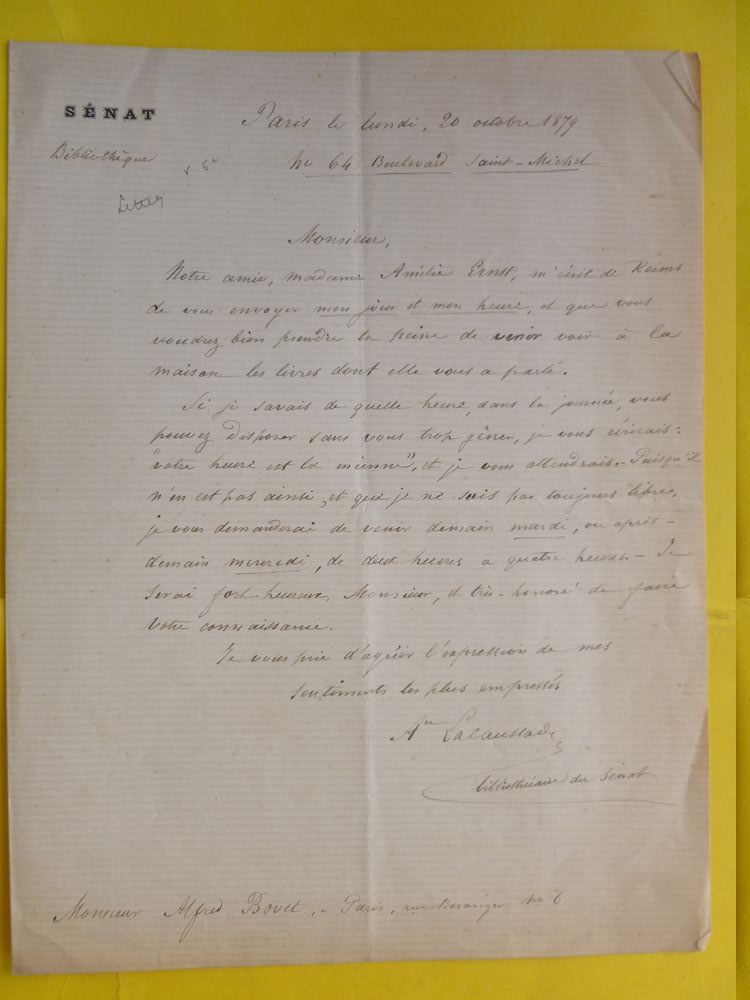 SÉNAT
Paris le lundi, 20 octobre 1879
Bibliothèque
No 64 Boulevard Saint-Michel
Monsieur,
Notre amie, madame Amélie Ernst, m'écrit de Reims
de vous envoyer mon jour et mon heure, et que vous
voudrez bien prendre la peine de venir voir à la
maison les livres dont elle vous a parlé.
Si je savais de quelle heure, dans la journée, vous
pouvez disposer sans vous trop gêner, je vous écrirais:
"votre heure est la mienne", et je vous attendrais. Puisqu'il
n'en est pas ainsi, et que je ne suis pas toujours libre,
je vous demanderai de venir demain mardi, ou après-
demain mercredi, de deux heures à quatre heures. - Je
serai fort heureux, Monsieur, et très-honoré de faire
votre connaissance.
Je vous prie d'agréer l'expression de mes
sentiments les plus empressés
Ate Lacaussade
bibliothécaire du Sénat
Monsieur Alfred Bovet. - Paris, rue Béranger No 6